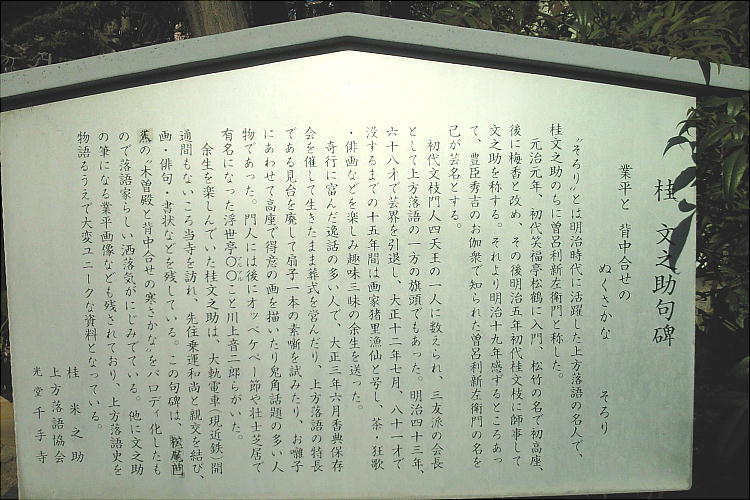 桂 文之助句碑
業平と 背中合せの
ぬくさかな そろり
〝そろり〟とは明治時代に活躍した上方落語の名人で、
桂文之助のちに曽呂利新左衛門と称した。
元治元年、初代笑福亭松鶴に入門、松竹の名で初高座、
後に梅香と改め、その後明治五年初代桂文枝に師事して
文之助を称する。それより明治十九年感ずるところあっ
て、豊臣秀吉のお伽衆で知られた曽呂利新左衛門の名を
己が芸名とする。
初代文枝門人四天王の一人に数えられ、三友派の会長
として上方落語の一方の旗頭でもあった。明治四十三年、
六十八才で芸界を引退し、大正十二年七月、八十一才で
没するまでの十五年間は画家猪里漁仙と号し、茶・狂歌
・俳画などを楽しみ趣味三昧の余生を送った。
奇行に富んだ逸話の多い人で、大正三年六月香典保存
会を催して生きたまま葬式を営んだり、上方落語の特長
である見台を廃して扇子一本の素噺を試みたり、お囃子
にあわせて高座で得意の画を描いたり兎角話題の多い人
物であった。門人には後にオッペケペー節や壮士芝居で
有名になった浮世亭〇〇こと川上音二郎らがいた。
余生を楽しんでいた桂文之助は、大軌電車(現近鉄)開
通間もないころ当寺を訪れ、先住乗運和尚と親交を結び、
画・俳句・書状などを残している。この句碑は、松尾芭
蕉の〝木曽殿と背中合せの寒さかな〟をパロディ化したも
ので落語家らしい洒落気がにじみでている。他に文之助
の筆になる業平画像なども残されており、上方落語史を
物語るうえで大変ユニークな資料となっている。
桂 米之助
上方落語協会
光堂千手寺